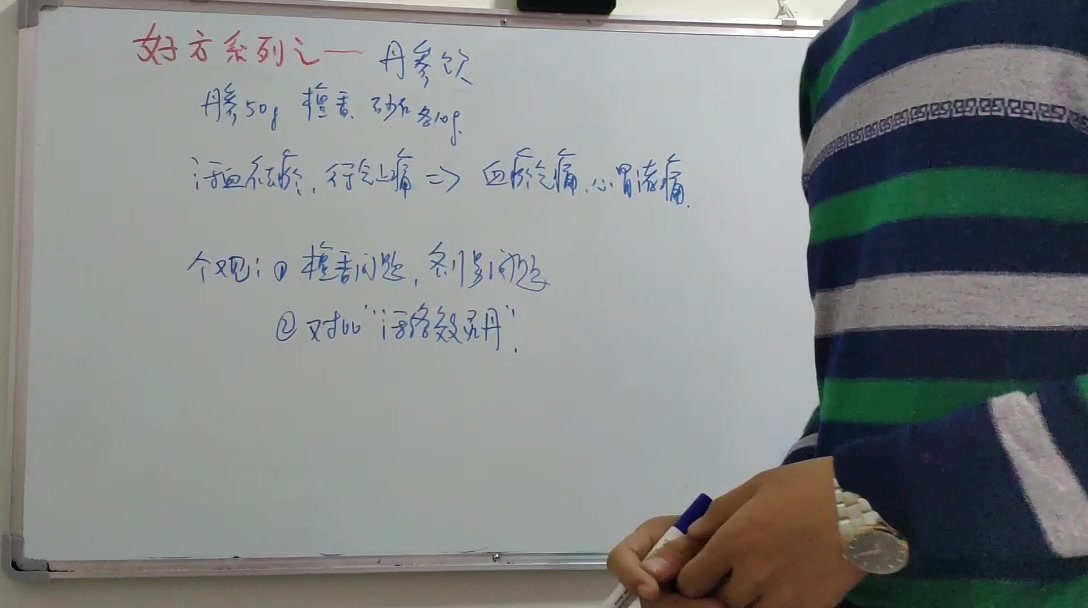 好方系列之一 丹参饮
丹参50g 檀香、砂仁各10g.
活血祛瘀，行气止痛 => 血瘀气痛、心胃诸痛.
个观：① 檀香问题，剂量问题
② 对比“活络效灵丹”.